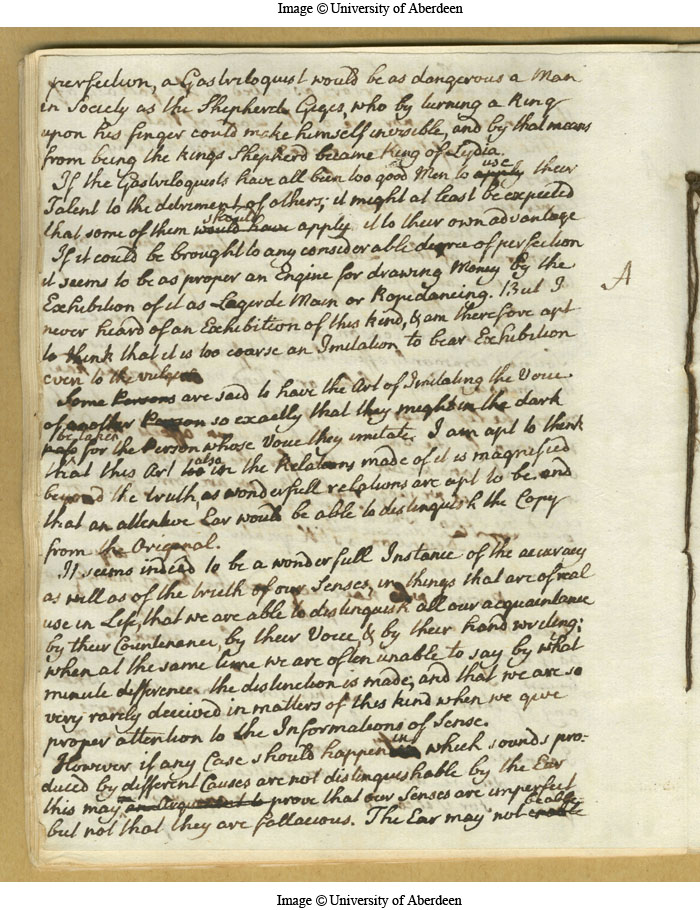 Image © University of Aberdeen
perfection, a Gastriloquist would be as dangerous a Man
in Society as the Shepherd Gyges, who by turning a Ring
upon his finger could make himself invisible, and by that means
from being the kings Shepherd became King of Lydia.
If the Gastriloquists have all been too good Men to apply use their
Talent to the detriment of others; it might at least be expected
that some of them would have should apply it to their own advantage
If it could be brought to any considerable degree of perfection
it seems to be as proper an Engine for drawing Money by the
Exhibition of it as Legerde Main or Ropedancing. But I
A
never heard of an Exhibition of this kind, & am therefore apt
to think that it is too coarse an Imitation to bear Exhibition
even to the vulgar
Some Persons are said to have the Art of Imitating the Voice
of another Person so exactly that they might in the dark
pass be taken for the Person whose Voice they imitate. I am apt to think
that this Art too also in the Relations made of it is magnified
beyond the truth, as wonderfull relations are apt to be, and
that an attentive Ear would be able to distinguish the Copy
from the Original.
It seems indeed to be a wonderfull Instance of the accuracy
as well as of the truth of our Senses, in things that are of real
use in Life, that we are able to distinguish all our acquaintance
by their Countenance, by their Voice, & by their hand writing;
when at the same time we are often unable to say by what
minute difference the distinction is made; and that we are so
very rarely deceived in matters of this kind when we give
proper attention to the Informations of Sense.
However if any Case should happen in which sounds pro-
duced by different Causes are not distinguishable by the Ear
this may an Argument to prove that our Senses are imperfect
but not that they are fallacious. The Ear may not be able
Image © University of Aberdeen